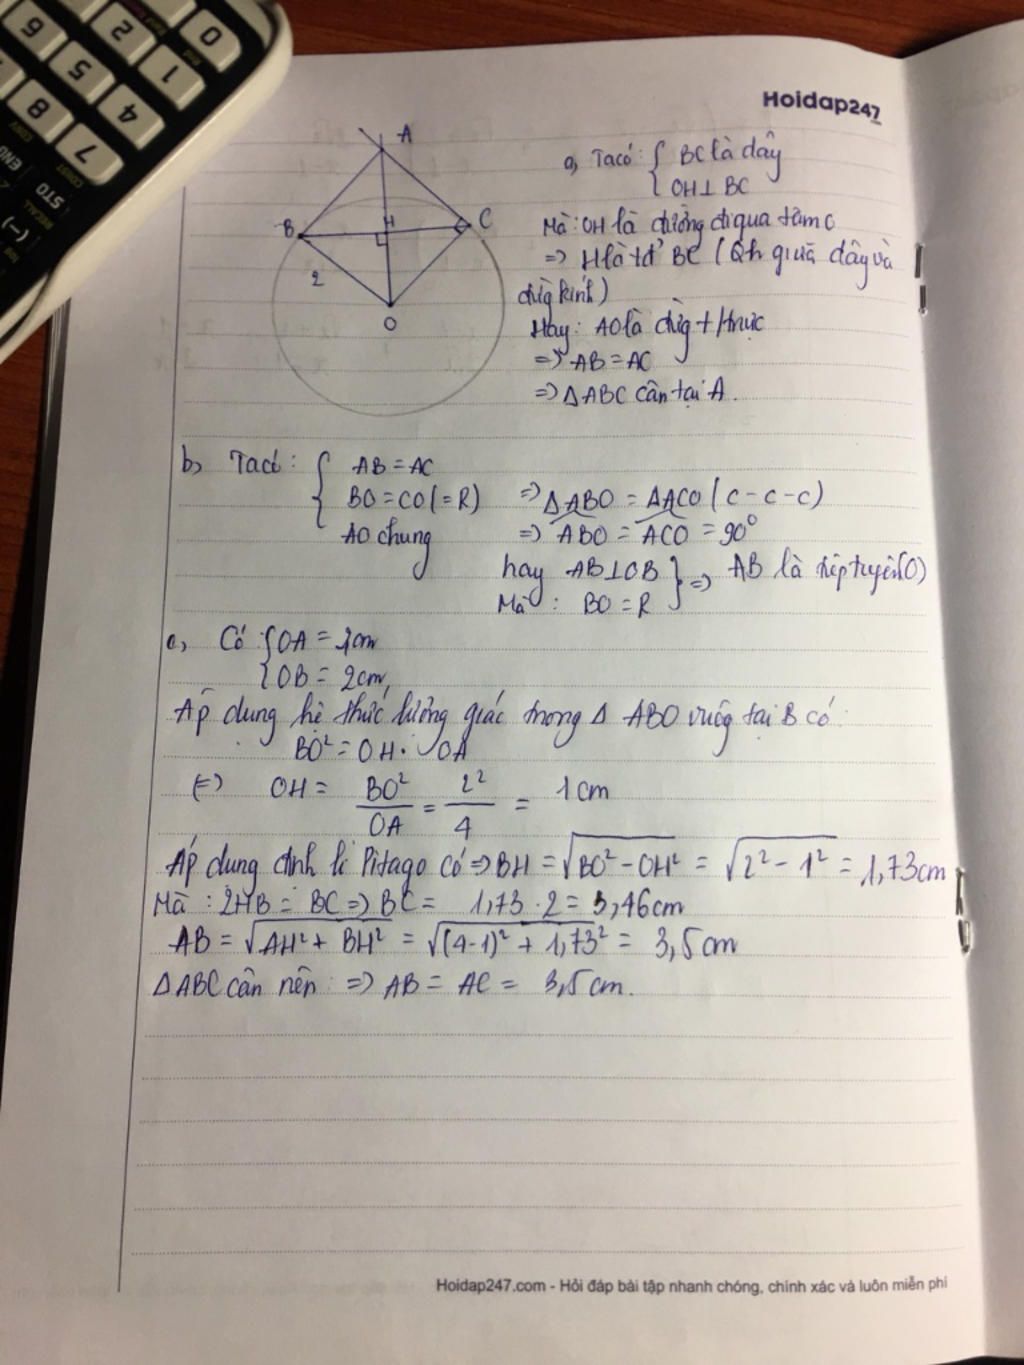 0
1
2
4
5
6
7
8
(-)
STO
RECALL
ENG
CONST
CONV
Hoidap247
A
B
H
C
2
O
a, Ta có: { BC là dây
{ OH ⊥ BC
Mà: OH là đường đi qua tâm O
=> H là tđ' BC (Qh giữa dây và
đừg kính)
Hay: AO là đừg t/trực
=> AB = AC
=> ΔABC cân tại A.
b, Ta có: { AB = AC
BO = CO (= R) => ΔABO = ΔACO (c-c-c)
AO chung => ABO = ACO = 90°
hay AB ⊥ OB } => AB là tiếp tuyến (O)
Mà: BO = R
c, Có { OA = 4cm
{ OB = 2cm,
Áp dụng hệ thức lượng giác trong Δ ABO vuôg tại B có:
BO² = OH . OA
(=) OH = BO²/OA = 2²/4 = 1cm
Áp dụng định lí Pitago có => BH = √BO² - OH² = √2² - 1² = 1,73cm
Mà: 2HB = BC => BC = 1,73 . 2 = 3,46cm
AB = √AH² + BH² = √(4-1)² + 1,73² = 3,5cm
ΔABC cân nên => AB = AC = 3,5cm.
Hoidap247.com - Hỏi đáp bài tập nhanh chóng, chính xác và luôn miễn phí